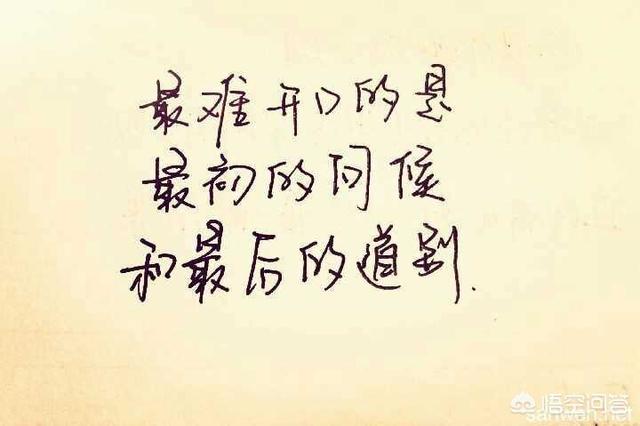 最难开口的是
最初的问候
和最后的道别.
悟空问答
sanwen.net